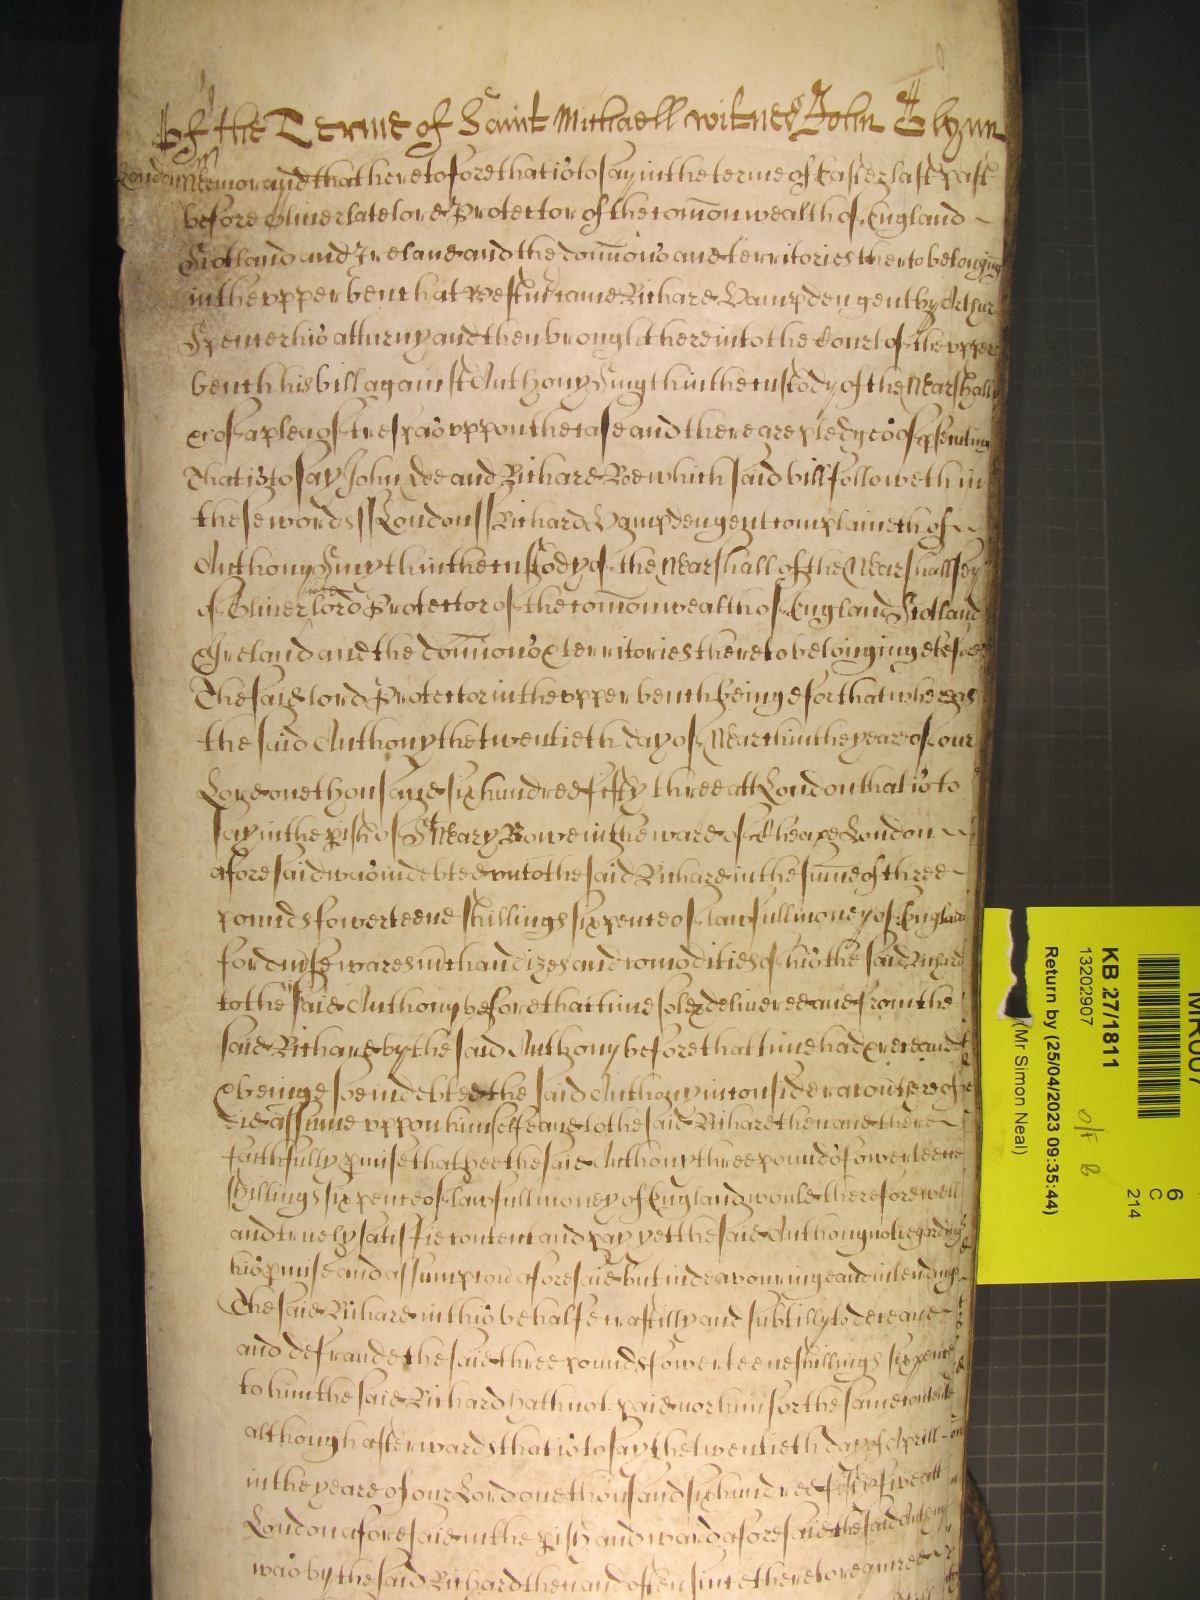 Of the Terme of Saint Michaell witnes John Glynn
London Memorand that heretofore that is to say in the terme of Easter last past
before Oliver late lord Protector of the comonwealth of England
Scotland and Ireland and the domons and territories therto belonging
in the upper bench at Westm came Richard Hampden gent by Arthur
Spencer his atturny and then brought here into the Court of the upper
bench his bill against Anthony Smyth in the custody of the Marshall
&c of a plea of trespas uppon the case and there are pledges of psecuting
That is to say John Doe and Richard Roe which said bill followeth in
these words ss London ss Richard Hampden gent complaineth of
Anthony Smyth in the custody of the Marshall of the Marshallsey
of Oliver lord Protector of the comonwealth of England Scotland
Ireland and the domons & territories thereto belonging before
The said lord Protector in the upper bench beinge for that whereas
the said Anthony the twentieth day of March in the yeare of our
Lord one thousand six hundred fifty three att London that is to
say in the pish of St Mary Bowe in the ward of Cheape London
aforesaid was indebted unto the said Richard in the sume of three
pounds fowerteene shillings six pence of lawfull money of England
for divse wares mchandizes and comodities of his the said Richard
to the said Anthony before that time sold & delivered and from the
said Richard by the said Anthony before that time had & received
& beinge soe indebted the said Anthony in consideracon thereof
did assume uppon himselfe and to the said Richard then and there
faithfully pmise that hee the said Anthony three pounds fowerteene
shillings six pence of lawfull money of England would therefore well
and truely satisfie content and pay yett the said Anthony not regarding
his pmise and assumpcon aforesaid but indeavouringe and intendinge
The said Richard in this behalfe craftilly and subtilly to deceave
and defraude the said three pounds fowerteene shillings six pence
to him the said Richard hath not paid nor him for the same contented
although afterwards that is to say the twentieth day of Aprill
in the yeare of our Lord one thousand six hundred att
London aforesaid in the pish and ward aforesaid the said Anthony
was by the said Richard then and often since thereto required
KB 27/1811
13202907
Return by (25/04/2023 09:35:44)
(Mr Simon Neal)
6
C
214